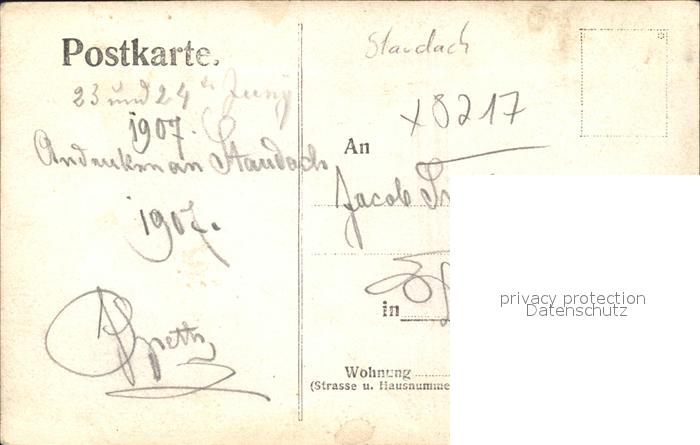 Postkarte.
23 und 24ten Juny
1907.
Andenken an Staudach
1907.
Staudach
x8217
An
Jacob
in
Wohnung
(Strasse u. Hausnumme
privacy protection
Datenschutz